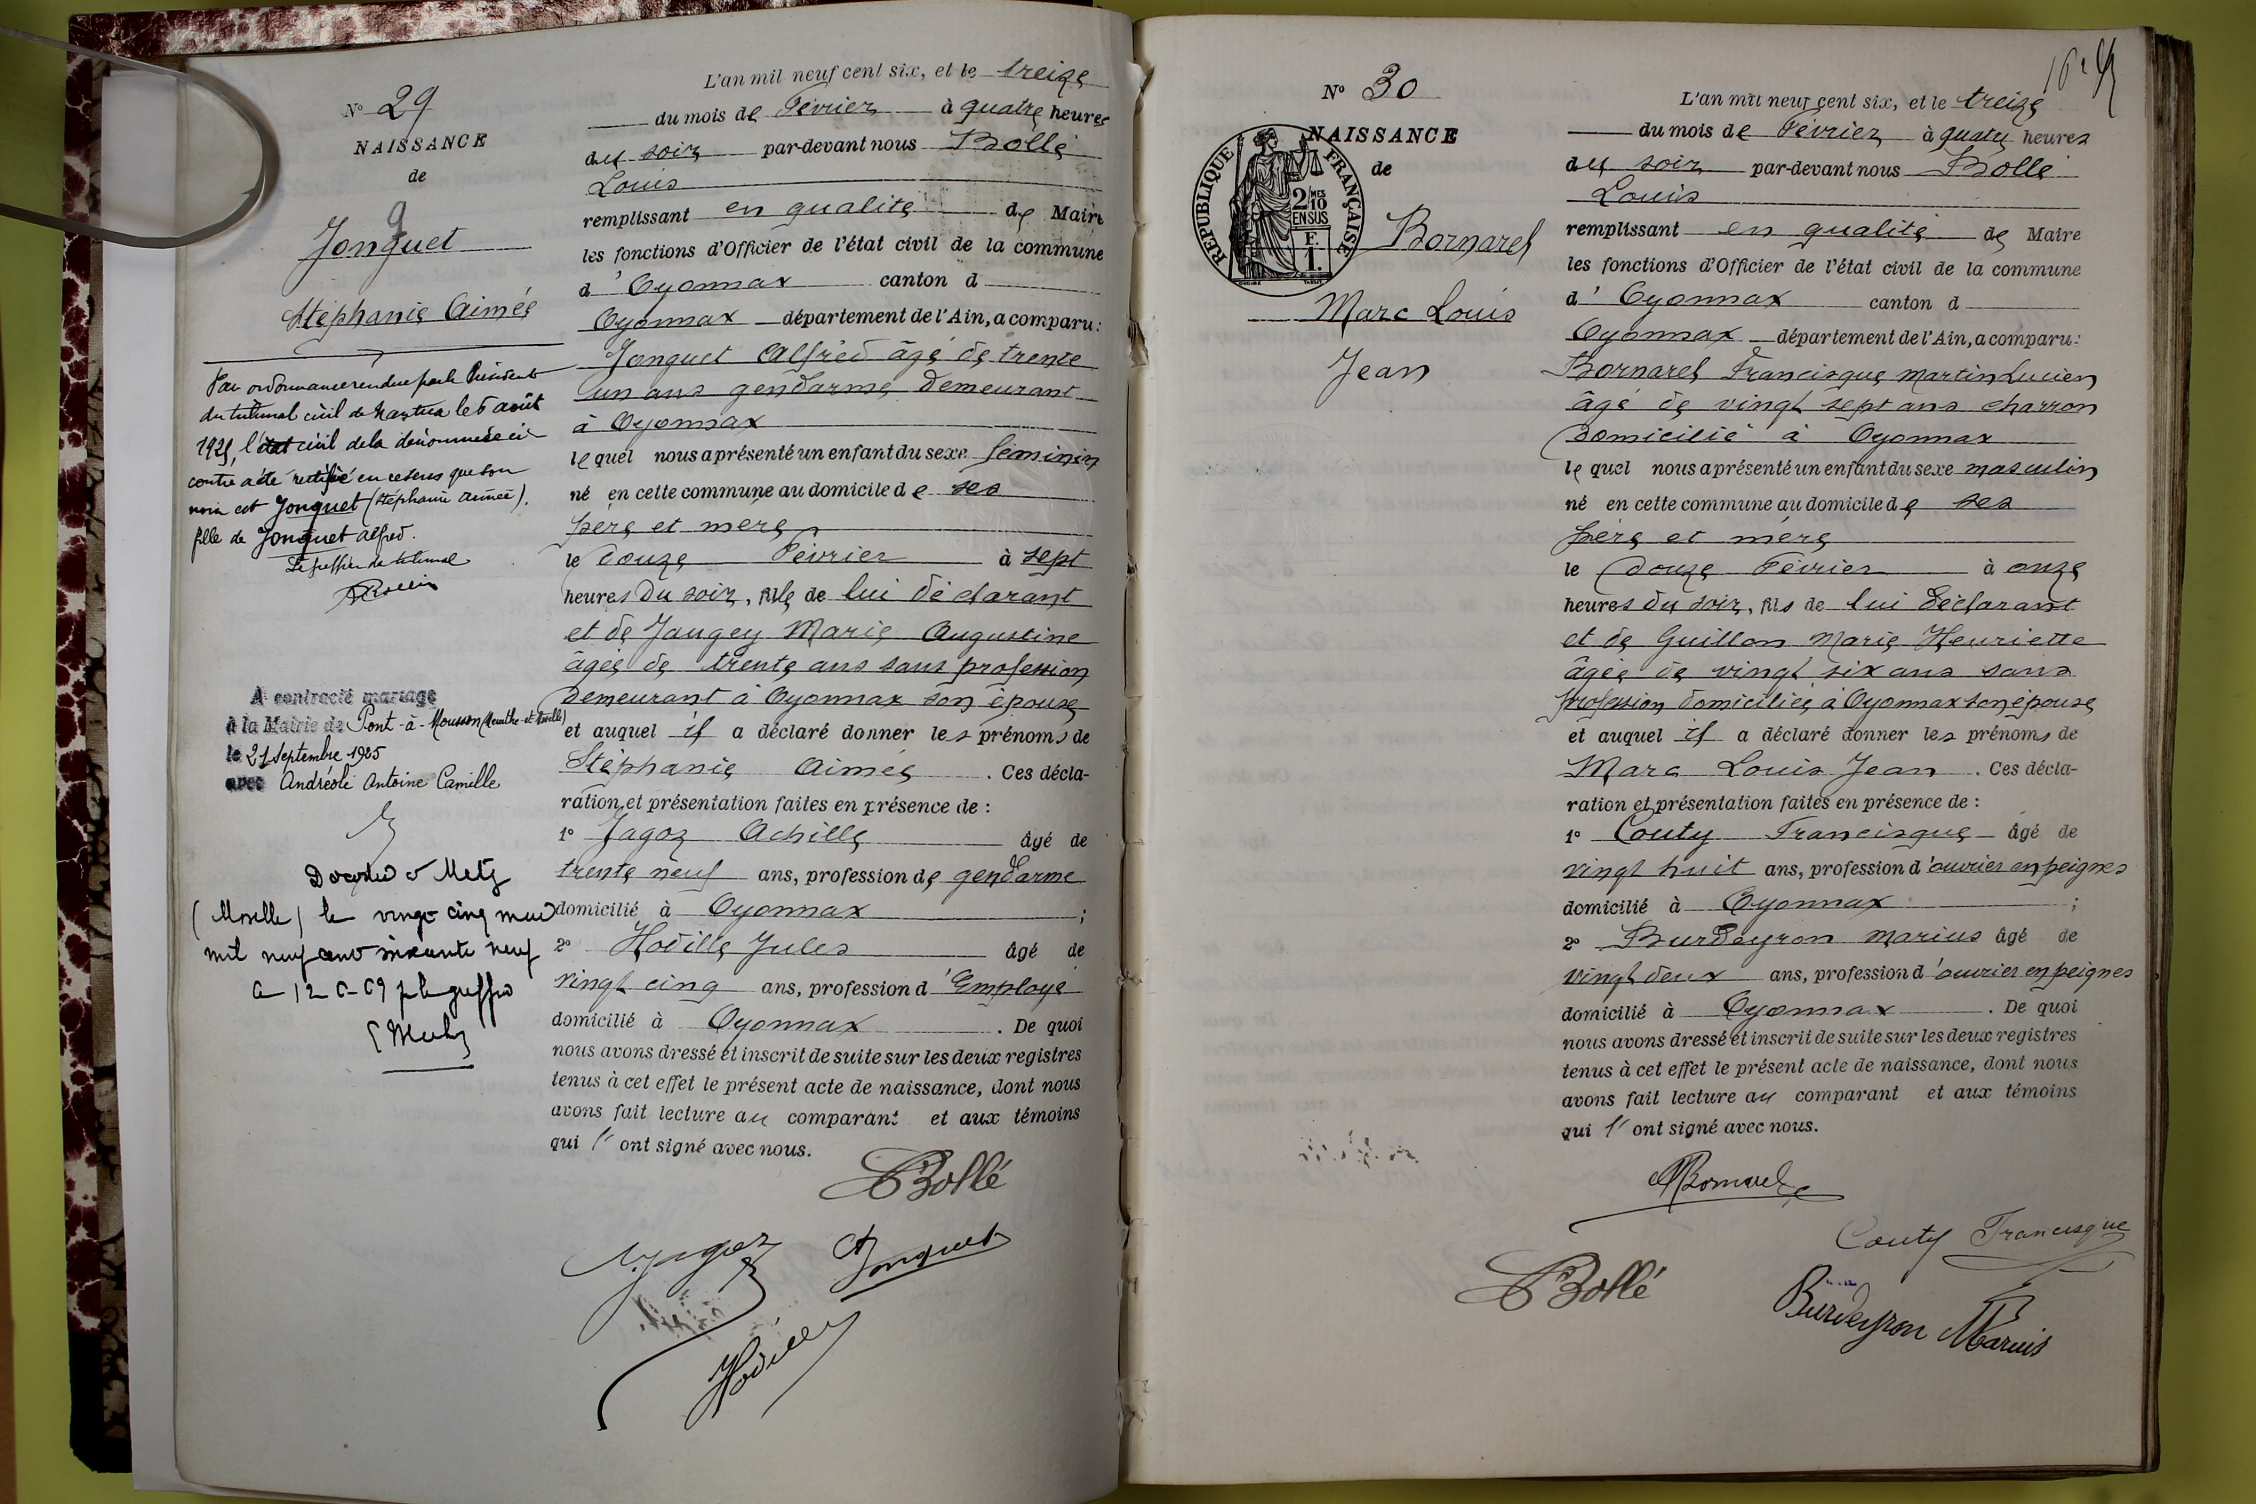 N° 29
NAISSANCE
de
Jonquet
Stéphanie Aimée
Par ordonnance rendue par le Président
du tribunal civil de Nantua le 6 août
1925, l'état civil de la dénommée ci
contre a été rectifié en ce sens que son
nom est Jonquet (Stéphanie Aimée).
fille de Jonquet Alfred.
Le greffier du tribunal
A contracté mariage
à la Mairie de Pont-à-Mousson (Meurthe-et-Moselle)
le 21 Septembre 1925
avec Andréoli Antoine Camille
Metz
(Moselle) le vingt cinq
mil neuf cent soixante neuf
L'an mil neuf cent six, et le treize
du mois de Février à quatre heures
du soir par-devant nous Bollé
Louis
remplissant en qualité de Maire
les fonctions d'Officier de l'état civil de la commune
d'Oyonnax canton d
Oyonnax département de l'Ain, a comparu :
Jonquet Alfred âgé de trente
un ans gendarme demeurant
à Oyonnax
lequel nous a présenté un enfant du sexe féminin
né en cette commune au domicile de ses
père et mère
le douze Février à sept
heures du soir, fille de lui déclarant
et de Jaugey Marie Augustine
âgée de trente ans sans profession
demeurant à Oyonnax son épouse
et auquel il a déclaré donner les prénoms de
Stéphanie Aimée . Ces décla-
ration et présentation faites en présence de :
1° Jagoz Achille âgé de
trente neuf ans, profession de gendarme
domicilié à Oyonnax ;
2° Hodille Jules âgé de
vingt cinq ans, profession d'Employé
domicilié à Oyonnax . De quoi
nous avons dressé et inscrit de suite sur les deux registres
tenus à cet effet le présent acte de naissance, dont nous
avons fait lecture au comparant et aux témoins
qui l'ont signé avec nous.
Bollé
A. Jagoz
A Jonquet
Hodille
N° 30
NAISSANCE
de
RÉPUBLIQUE FRANÇAISE
2 MES
10
EN SUS
F.
1.
Bornarel
Marc Louis
Jean
L'an mil neuf cent six, et le treize
du mois de Février à quatre heures
du soir par-devant nous Bollé
Louis
remplissant en qualité de Maire
les fonctions d'Officier de l'état civil de la commune
d'Oyonnax canton d
Oyonnax département de l'Ain, a comparu :
Bornarel Francisque Martin Lucien
âgé de vingt sept ans charron
domicilié à Oyonnax
lequel nous a présenté un enfant du sexe masculin
né en cette commune au domicile de ses
père et mère
le douze Février à onze
heures du soir, fils de lui déclarant
et de Guillon Marie Henriette
âgée de vingt six ans sans
profession domiciliée à Oyonnax son épouse
et auquel il a déclaré donner les prénoms de
Marc Louis Jean . Ces décla-
ration et présentation faites en présence de :
1° Couty Francisque âgé de
vingt huit ans, profession d'ouvrier en peignes
domicilié à Oyonnax ;
2° Burdeyron Marius âgé de
vingt deux ans, profession d'ouvrier en peignes
domicilié à Oyonnax . De quoi
nous avons dressé et inscrit de suite sur les deux registres
tenus à cet effet le présent acte de naissance, dont nous
avons fait lecture au comparant et aux témoins
qui l'ont signé avec nous.
Bornarel
Couty Francisque
Bollé
Burdeyron Marius